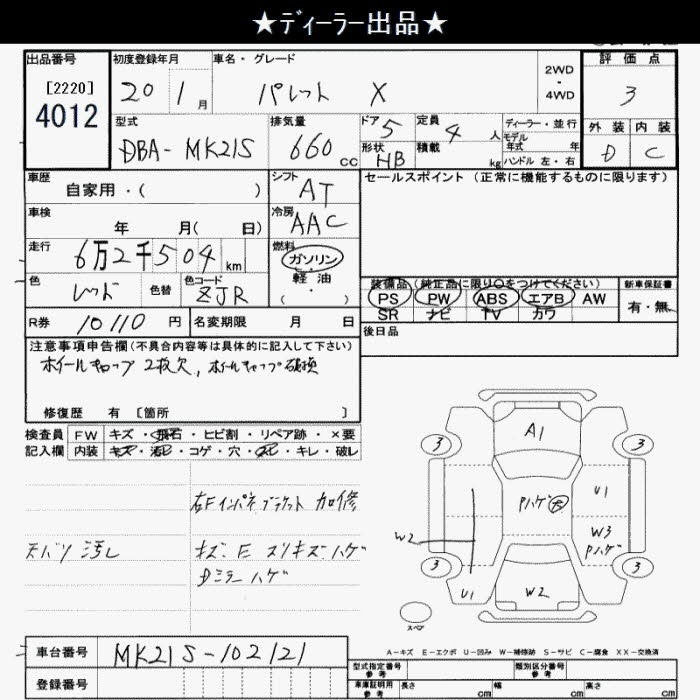 ★ディーラー出品★
出品番号 初度登録年月 車名・グレード 2WD・4WD 評価点
[2220] 20 1月 パレット X 3
4012
型式 排気量 ドア 5 定員 4人 ディーラー・並行 外装 内装
DBA-MK21S 660cc 形状 HB 積載 kg モデル年式 年 D C
ハンドル 左・右
車歴 シフト セールスポイント (正常に機能するものに限ります)
自家用・( ) AT
車検 冷房
年 月( 日) AAC
走行 燃料
6万2千504km ガソリン・軽油
色 色替 色コード ( ・ ) 装備品 (純正品に限り○をつけてください) 新車保証書
レッド ZJR PS PW ABS エアB AW 有・無
SR ナビ TV カワ
R券 10110円 名変期限 月 日 後日品
注意事項申告欄(不具合内容等は具体的に記入して下さい)
ホイールキャップ 2枚欠, ホイールキャップ破損
修復歴 有 〔箇所 〕
検査員 FW キズ・飛石・ヒビ割・リペア跡・×要
記入欄 内装 キズ・汚レ・コゲ・穴・スレ・キレ・破レ
右Fインパネブラケット 加修
天バリ 汚レ キズ E スリキズ ハゲ
Dミラー ハゲ
A1
3 3
Pハゲ 大 U1
W2 W3
Pハゲ
3 3
U1 W2
スペア
A-キズ E-エクボ U-凹み W-補修跡 S-サビ C-腐食 XX-交換済
車台番号 MK21S-102121 型式指定番号 参考 類別区分番号 参考
登録番号 車庫証明用 参考 長さ cm 幅 cm 高さ cm